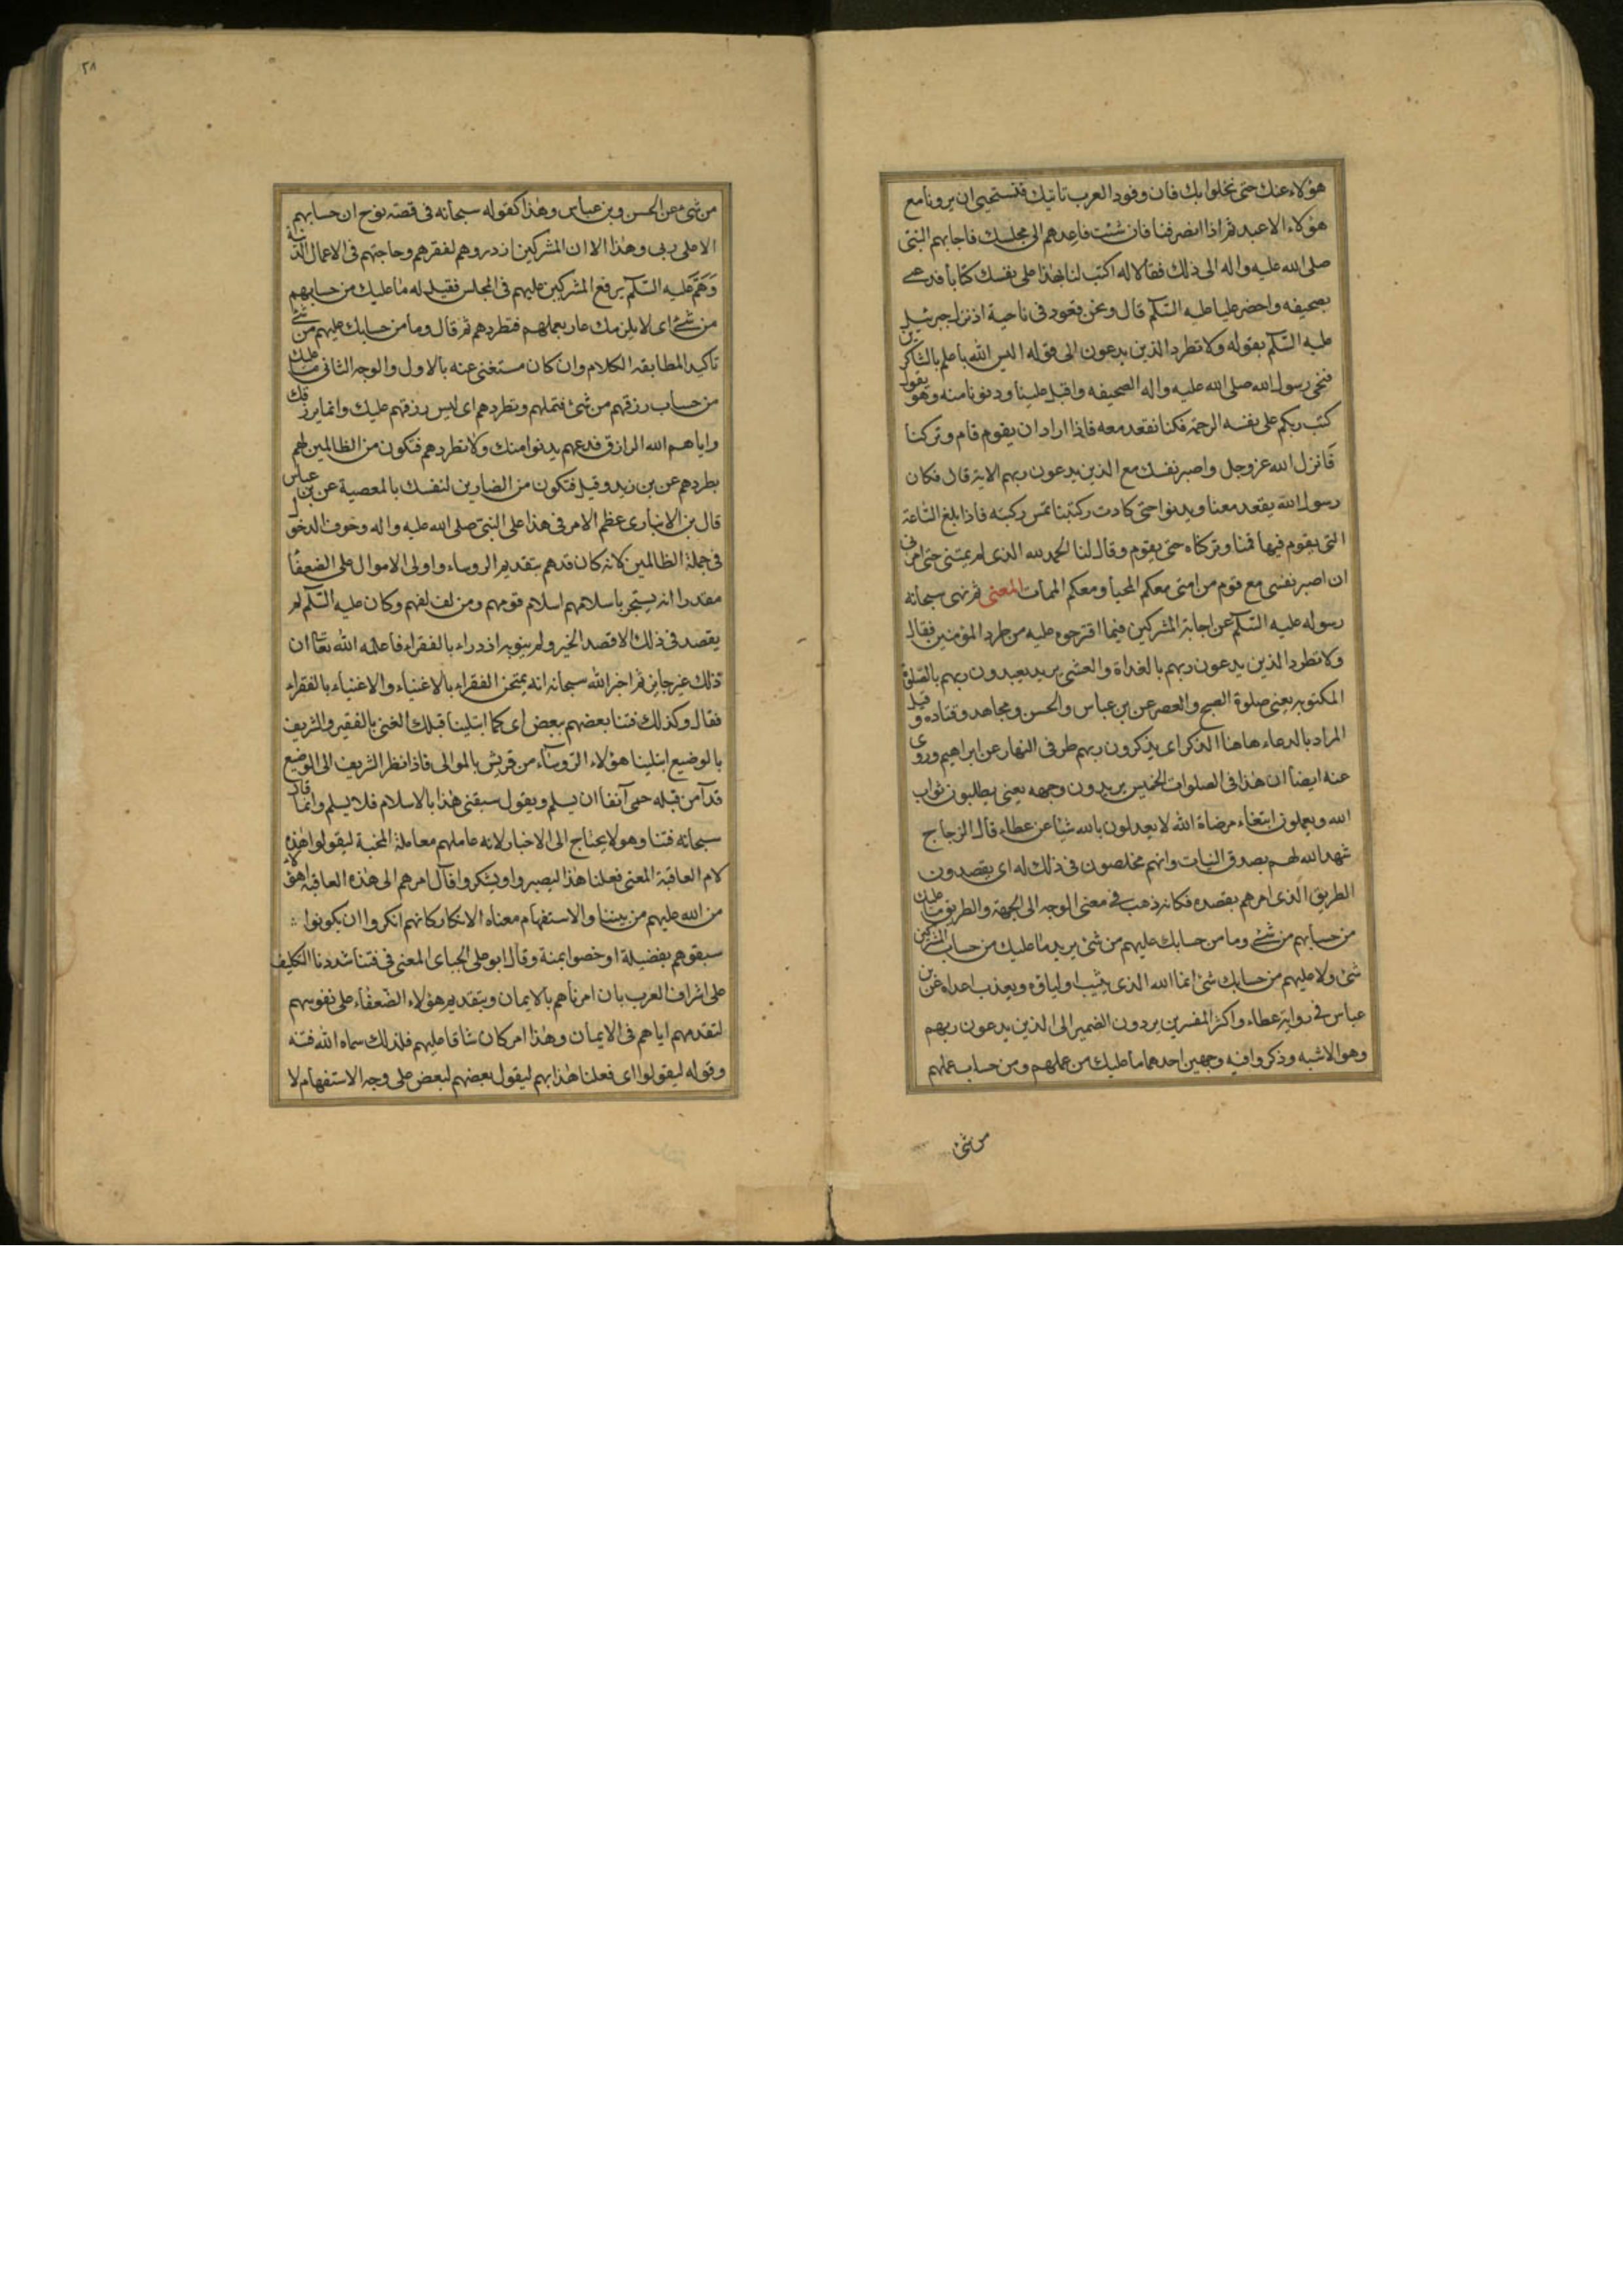 هؤلاء عنك حتى نخلوا بك فان وفود العرب تاتيك فنستحيى ان يرونا مع
هؤلاء الاعبد ثم اذا انصرفنا فان شئت فاعدهم الى مجلسك فاجابهم النبى
صلى الله عليه واله الى ذلك فقالا له اكتب لنا بهذا على نفسك كتابا فدعى
بصحيفه واحضر عليا عليه السلم قال ونحن قعود فى ناحية اذ نزل جبرئيل
عليه السلم بقوله ولا تطرد الذين يدعون الى قوله اليس الله باعلم بالشاكرين
فنحى رسول الله صلى الله عليه واله الصحيفه واقبل علينا ودنونا منه وهو يقول
كتب ربكم على نفسه الرحمة فكنا نقعد معه فاذا اراد ان يقوم قام وتركنا
فانزل الله عز وجل واصبر نفسك مع الذين يدعون ربهم الاية قال فكان
رسول الله يقعد معنا ويدنوا حتى كادت ركبتنا تمس ركبته فاذا بلغ الساعة
التى يقوم فيها قمنا وتركناه حتى يقوم وقال لنا الحمد لله الذى لم يمتنى حتى امرنى
ان اصبر نفسى مع قوم من امتى معكم المحيا ومعكم الممات المعنى ثم نهى سبحانه
رسوله عليه السلم عن اجابة المشركين فيما اقترحوه عليه من طرد المؤمنين فقال
ولا تطرد الذين يدعون ربهم بالغداة والعشى يريد يعبدون ربهم بالصلوة
المكتوبه يعنى صلوة الصبح والعصر عن بن عباس والحسن ومجاهد وقتاده وقيل
المراد بالدعاء هاهنا الذكر اى يذكرون ربهم طرفى النهار عن ابراهيم وروى
عنه ايضا ان هذا فى الصلوات الخمس يريدون وجهه يعنى يطلبون ثواب
الله ويعملون ابتغاء مرضاة الله لا يعدلون بالله شيئا عن عطاء قال الزجاج
شهد الله لهم بصدق النيات وانهم مخلصون فى ذلك له اى يقصدون
الطريق الذى امرهم بقصده فكانه ذهب فى معنى الوجه الى الجهة والطريق ما عليك
من حسابهم من شئ وما من حسابك عليهم من شئ يريد ما عليك من حساب المشركين
شئ ولا عليهم من حسابك شئ انما الله الذى يثيب اولياؤه ويعذب اعداه عن بن
عباس فى رواية عطاء واكثر المفسرين يردون الضمير الى الذين يدعون ربهم
وهو الاشبه وذكروا فيه وجهين احدهما ما عليك من عملهم ومن حساب عملهم
من شئ
٢٨
من شئ عن الحسن وبن عباس وهذا كقوله سبحانه فى قصة نوح ان حسابهم
الا على ربى وهذا الا ان المشركين ازدروهم لفقرهم وحاجتهم فى الاعمال الدنية
وهم عليه السلم يرفع المشركين عليهم فى المجلس فقيل له ما عليك من حسابهم
من شئ اى لا يلزمك عار بعملهم فتطردهم ثم قال وما من حسابك عليهم من شئ
تاكيدا لمطابقه الكلام وان كان مستغنى عنه بالاول والوجه الثانى ما عليك
من حساب رزقهم من شئ فتملهم وتطردهم اى ليس رزقهم عليك وانما يرزقك
واياهم الله الرازق فدعهم يدنوا منك ولا تطردهم فتكون من الظالمين لهم
بطردهم عن بن زيد وقيل فتكون من الضارين لنفسك بالمعصية عن بن عباس
قال بن الانبارى عظم الامر فى هذا على النبى صلى الله عليه واله وخوف الدخول
فى جملة الظالمين لانه كان قد هم بتقديم الروساء واولى الاموال على الضعفا
مقدرا انه يستجر باسلامهم اسلام قومهم ومن لف لفهم وكان عليه السلم لم
يقصد فى ذلك الا قصد الخير ولم ينو به ازدراء بالفقراء فاعلمه الله تعا ان
ذلك غير جايز ثم اخبر الله سبحانه انه يمتحن الفقراء بالاغنياء والاغنياء بالفقراء
فقال وكذلك فتنا بعضهم ببعض اى كما ابتلينا قبلك الغنى بالفقير والشريف
بالوضيع ابتلينا هؤلاء الروساء من قريش بالموالى فاذا نظر الشريف الى الوضيع
قد آمن قبله حمى آنفا ان يسلم ويقول سبقنى هذا بالاسلام فلا يسلم وانما قال
سبحانه فتنا وهو لا يحتاج الى الاختبار لانه عاملهم معاملة المختبة ليقولوا هذه
لام العاقبة المعنى فعلنا هذا ليصبروا ويشكروا فآل امرهم الى هذه العاقبة اهؤلاء
من الله عليهم من بيننا والاستفهام معناه الانكار كانهم انكروا ان يكونوا
سبقوهم بفضيلة او خصوا بمنة وقال ابو على الجباى المعنى فى فتنا شددنا التكليف
على اشراف العرب بان امرناهم بالايمان وبتقديم هؤلاء الضعفاء على نفوسهم
لتقدمهم اياهم فى الايمان وهذا امر كان شاقا عليهم فلذلك سماه الله فتنة
وقوله ليقولوا اى فعلنا هذا بهم ليقول بعضهم لبعض على وجه الاستفهام لا